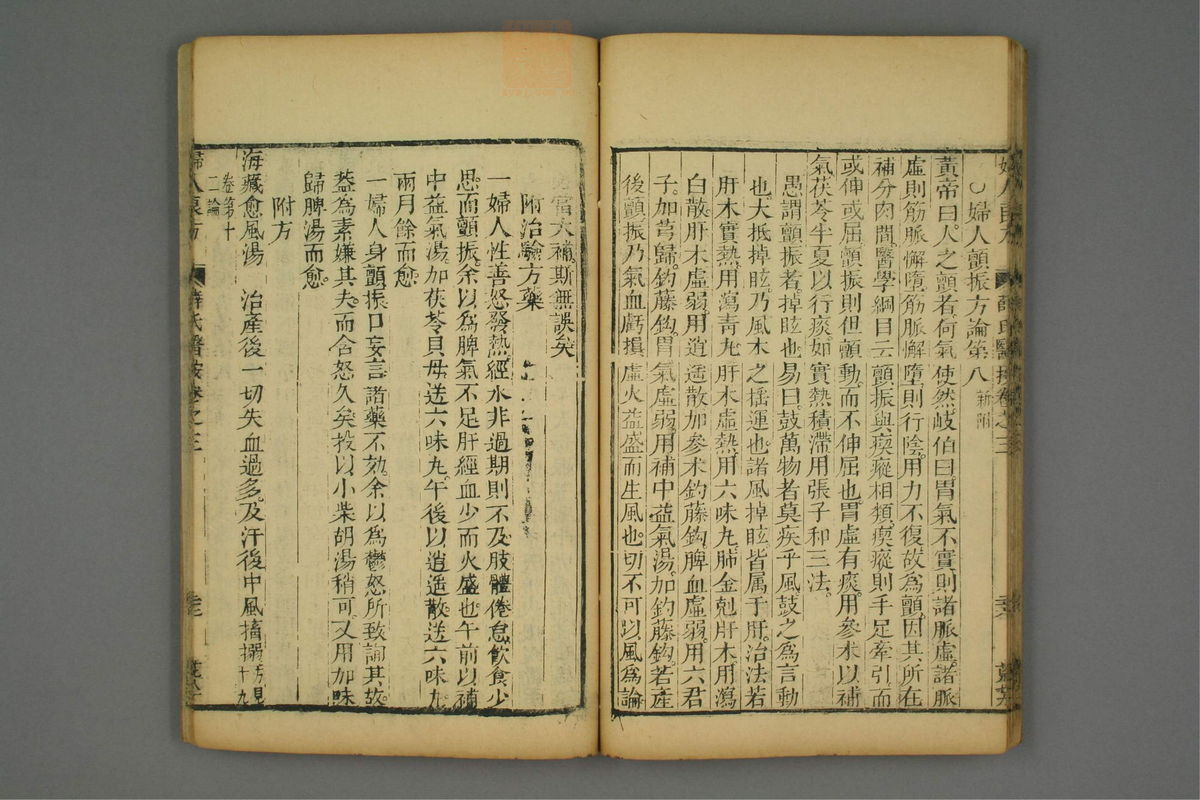 婦人良方
薛氏醫按卷之三
○婦人顫振方論第八新附
黃帝曰人之顫者何氣使然岐伯曰胃氣不實則諸脈虛諸脈
虛則筋脈懈墮筋脈懈墮則行陰用力不復故為顫因其所在
補分肉間醫學綱目云顫振與瘈瘲相類瘈瘲則手足牽引而
或伸或屈顫振則但顫動而不伸屈也胃虛有痰用參术以補
氣茯苓半夏以行痰如實熱積滯用張子和三法
愚謂顫振者掉眩也易曰鼓萬物者莫疾乎風鼓之為言動
也大抵掉眩乃風木之搖運也諸風掉眩皆屬于肝治法若
肝木實熱用瀉青丸肝木虛熱用六味丸肺金剋肝木用瀉
白散肝木虛弱用逍遥散加參术釣藤鈎脾血虛弱用六君
子加芎歸釣藤鈎胃氣虛弱用補中益氣湯加釣藤鈎若產
後顫振乃氣血虧損虛火益盛而生風也切不可以風為論
當大補斯無誤矣
附治驗方藥
一婦人性善怒發熱經水非過期則不及肢體倦怠飲食少
思而顫振余以為脾氣不足肝經血少而火盛也午前以補
中益氣湯加茯苓貝母送六味丸午後以逍遥散送六味丸
兩月餘而愈
一婦人身顫振口妄言諸藥不効余以為鬱怒所致詢其故
蓋為素嫌其夫而含怒久矣投以小柴胡湯稍可又用加味
歸脾湯而愈
附方
海藏愈風湯 治產後一切失血過多及汗後中風搐搦方見十九
卷第十
二論
婦人良方
薛氏醫按卷之三